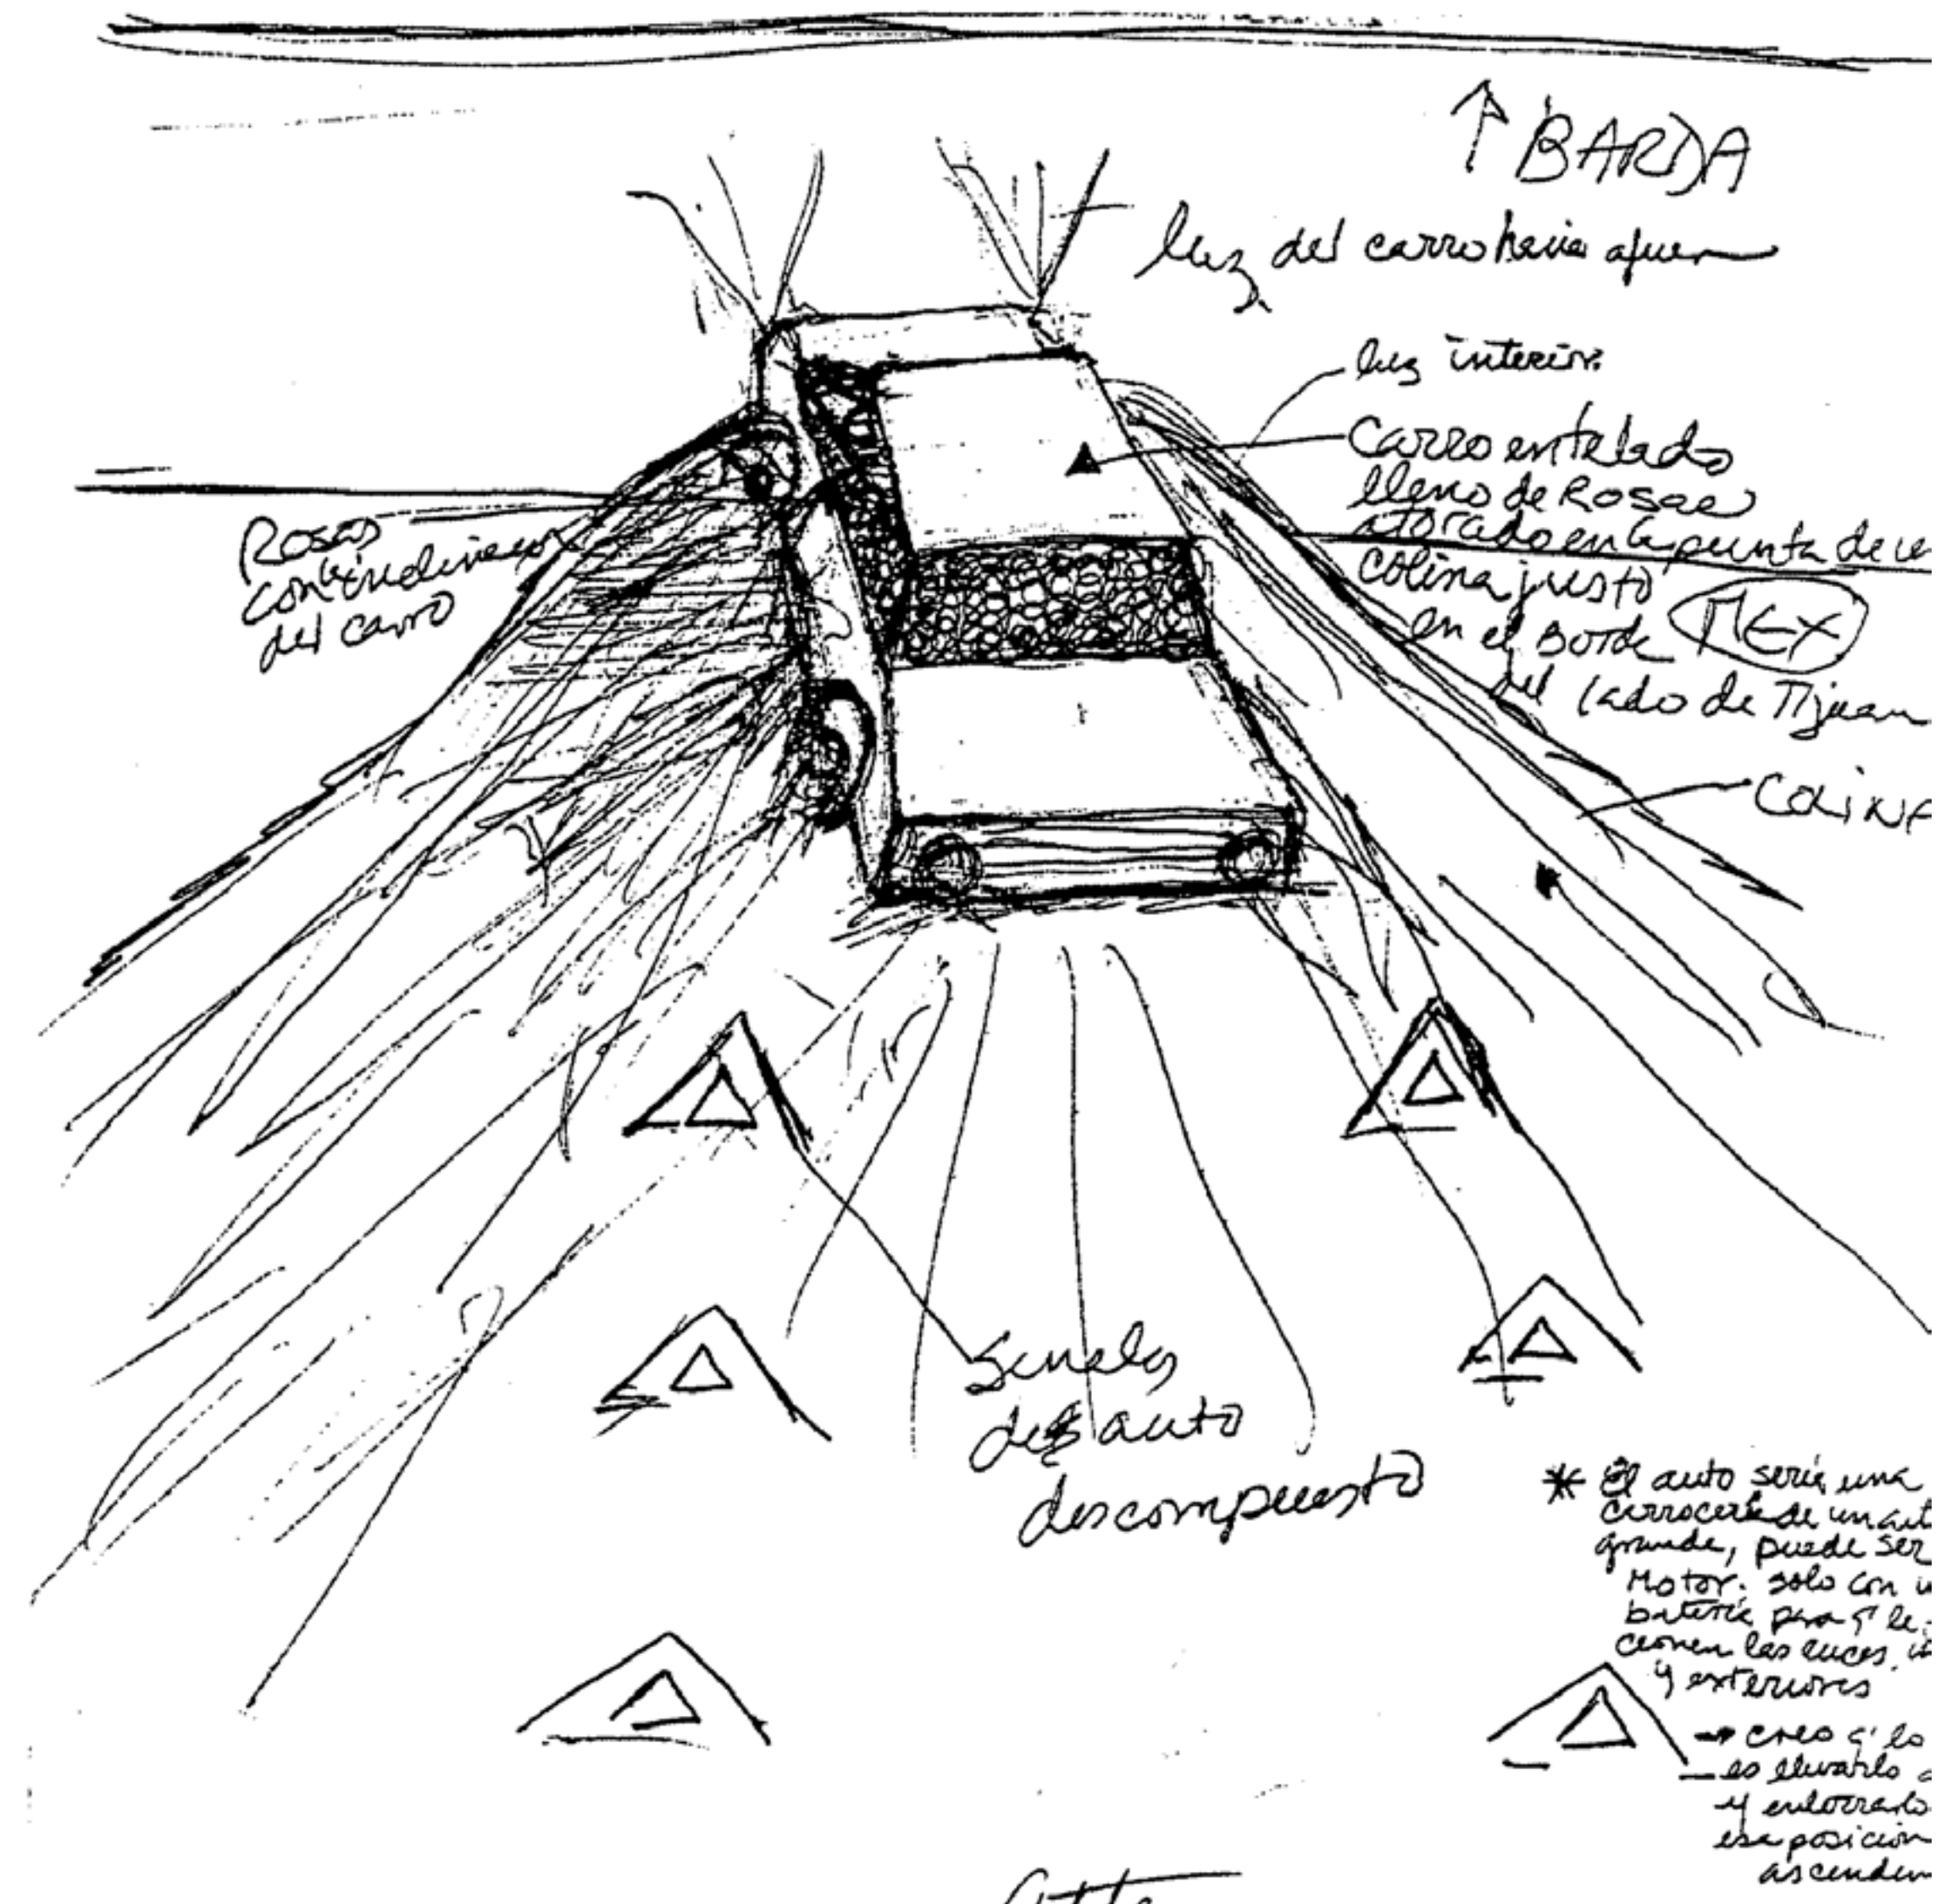 ↑ BARDA
luz del carro hacia afuera
luz interior
Carro entelado
lleno de Rosas
atorado en la punta de
colina justo
en el Borde MEX
del lado de Tijuan
COLINA
Rosas
con
del carro
Senales
del auto
descompuesto
* El auto seria una
carroceria de un aut
grande, puede ser
Motor. solo con
bateria para q' le
cionen las luces
y exteriores
→ creo q' lo
es llevarlo
y
esa posicion
ascenden
Atte